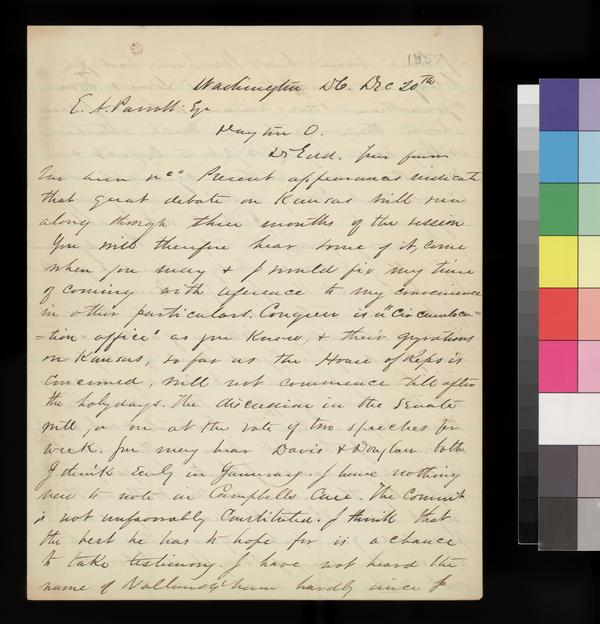 1857
Washington DC. Dec 20th
E. A. Parrott Esq
Dayton O.
Dr Edd. Your favor
has been recd. Present appearances indicate
that great debate on Kansas will run
along through three months of the session.
You will therefore hear some of it, come
when you may & I would fix my time
of coming with reference to my convenience
in other particulars. Congress is a "Circumlocu=
=tion office" as you know, & their gyrations
on Kansas, so far as the House of Reps is
concerned, will not commence till after
the holydays. The discussion in the Senate
will go on at the rate of two speeches per
week. You may hear Davis & Douglass both
I think early in January. I have nothing
new to note in Campbells Case. The Committ
is not unfavorably Constituted. I think that
the best he has to hope for is a chance
to take testimony. I have not heard the
name of Vallandigham hardly since I